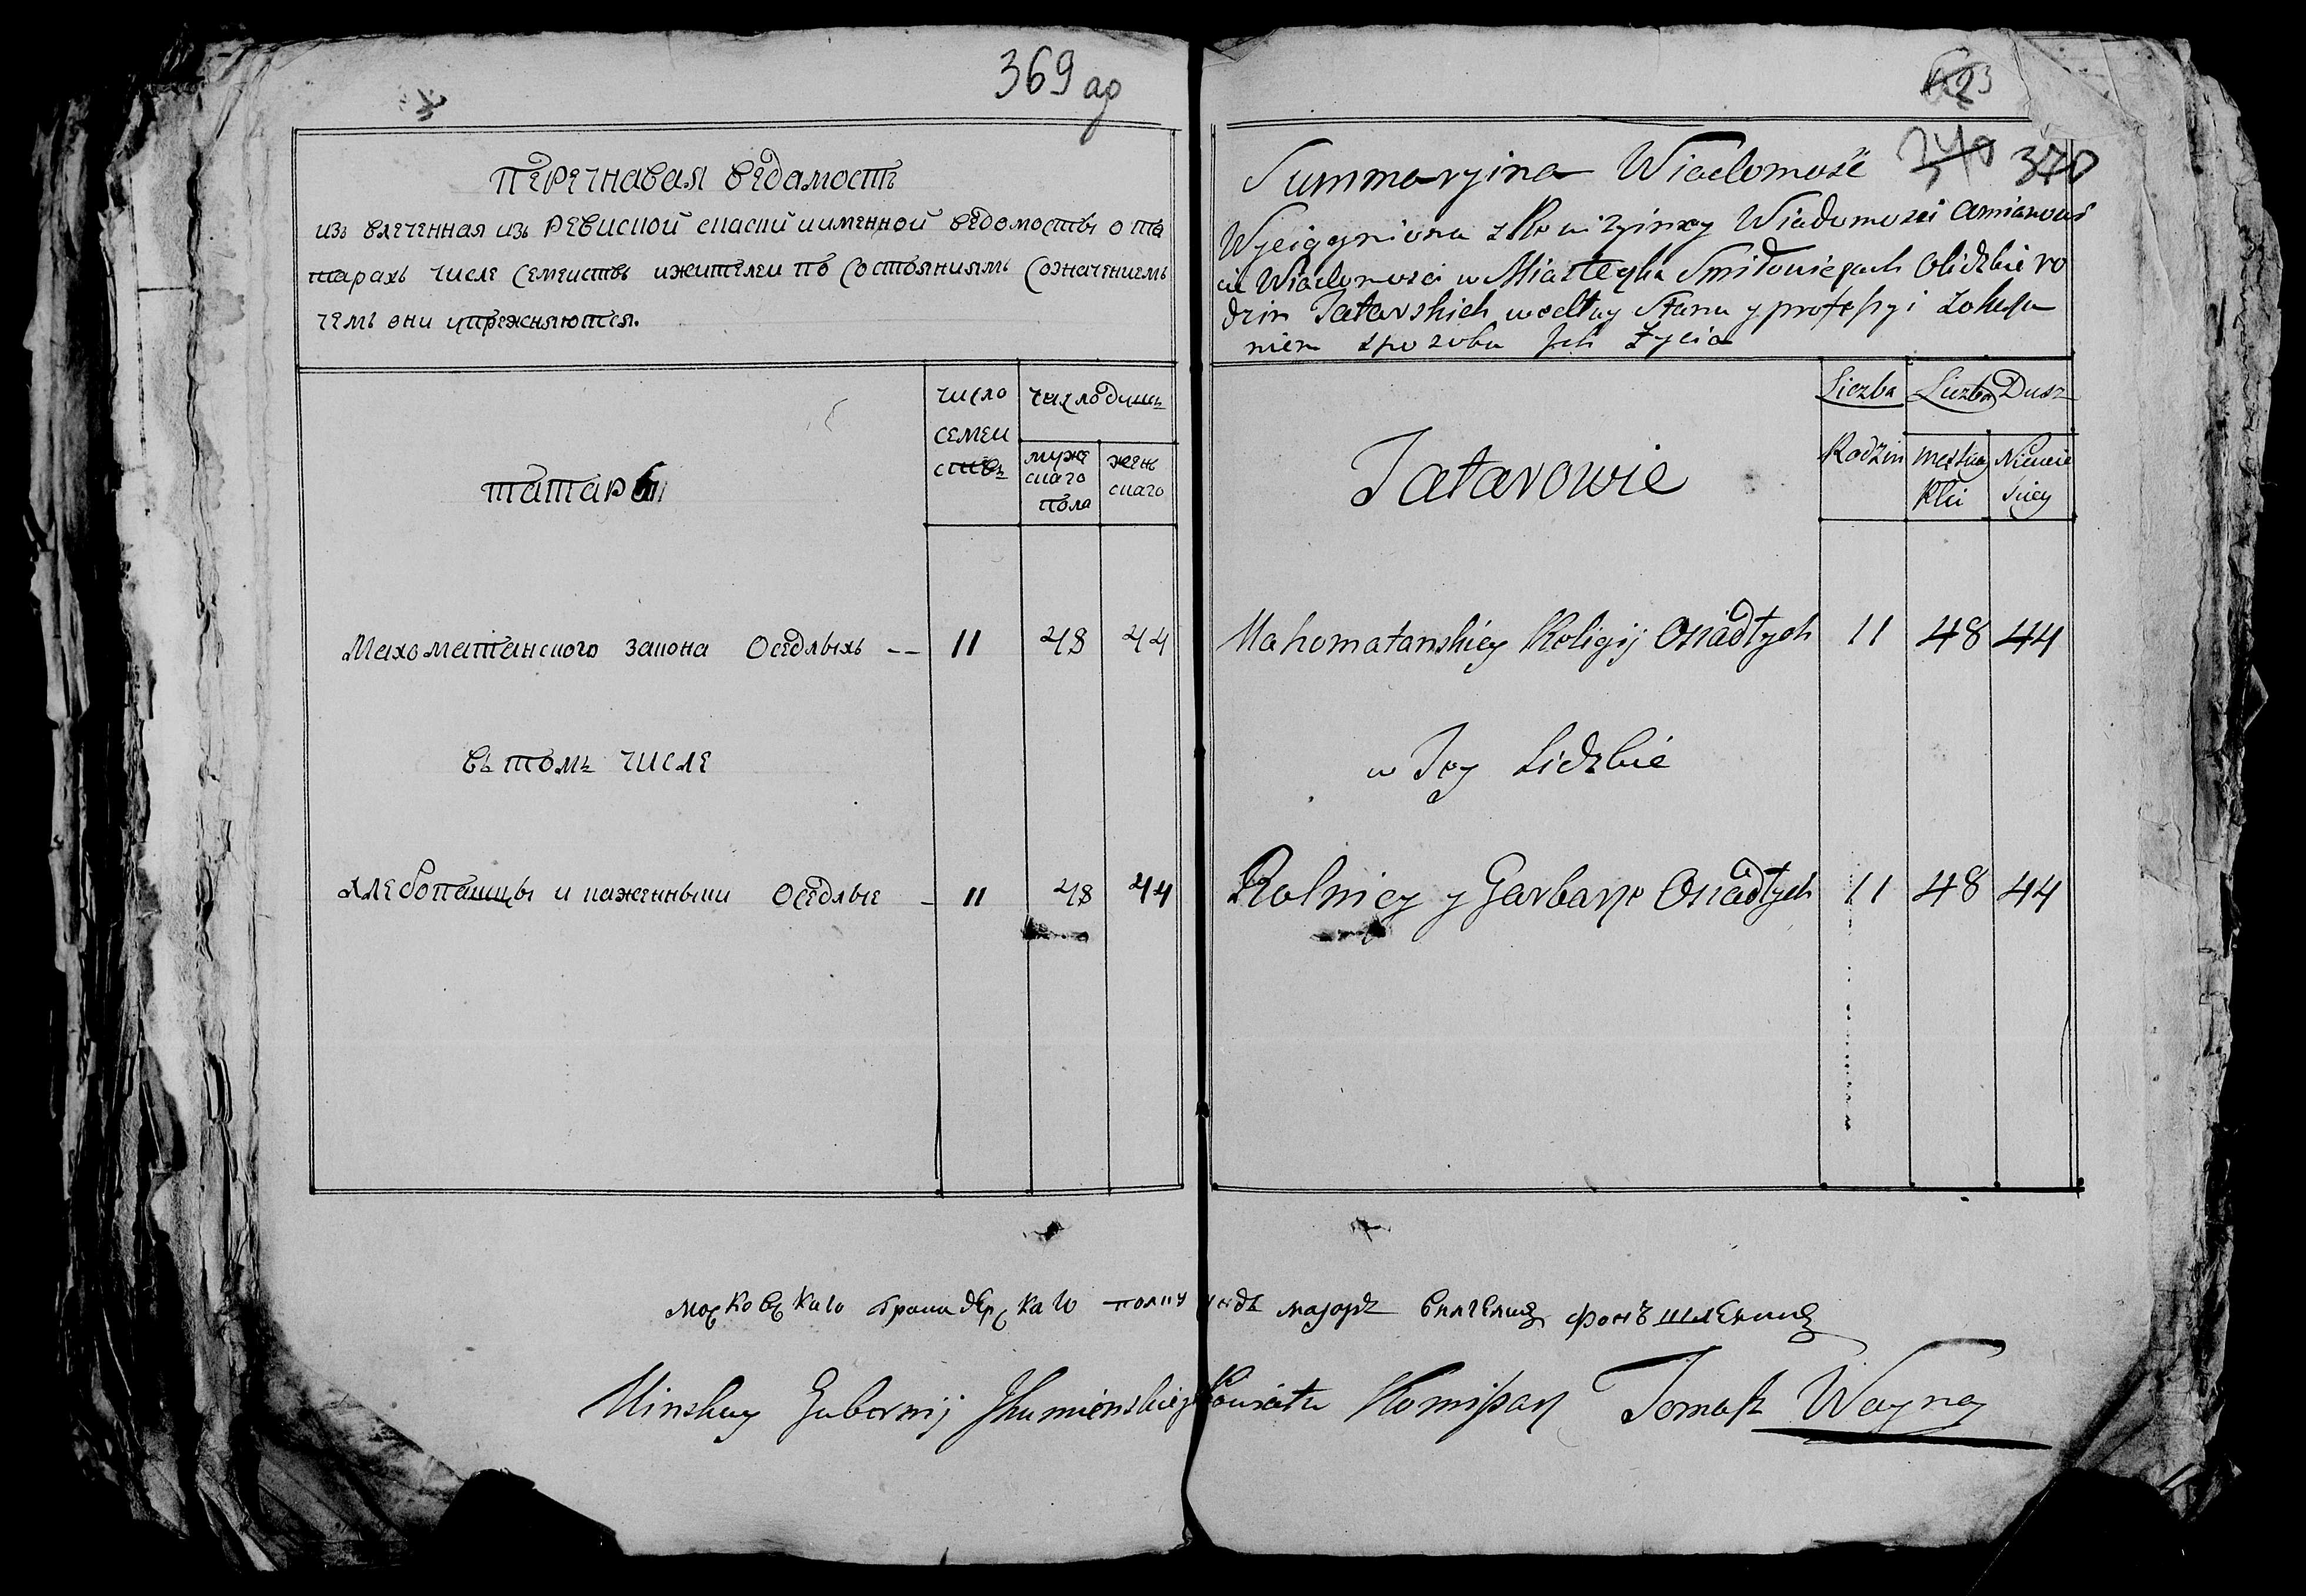 369 ад
перечнавая ведамость
изъ влеченная изъ ревиской скаски иименной ведомосты о та
тарахъ числе семеиствъ ижителеи по состояниямъ созначениемъ
чемъ они упрежняются.
татары
число
семеи
ствъ
числодушъ
муже
скаго
пола
жень
скаго
Махоматанского закона оседлыхъ -- 11 48 44
въ томъ числе
хлебопашцы и кажевныки оседлые - 11 48 44
623
340 370
Summaryina Wiadomość
Wyciągniona z Rewizyiney Wiadomosci
Wiadomosci w Miasteczku Smiłowiczach olidzbie ro
dzin Tatarskich wedlug Stanu y professyi
niem sposobu Jch Życia
Tatarowie
Liczba
Rodzin
Liczba Dusz
męskiey
Płci
Niewie
sciey
Mahomatanskiey Religij Osiadłych 11 48 44
w Tey Lidzbie
Rolnicy y Garbarze Osiadłych 11 48 44
московскаго гранадерскаго полку маjоръ вилгелмъ фонъ
Minskiey Gubernij Jhumenskiego Powiatu Komissarz Tomasz Wayna